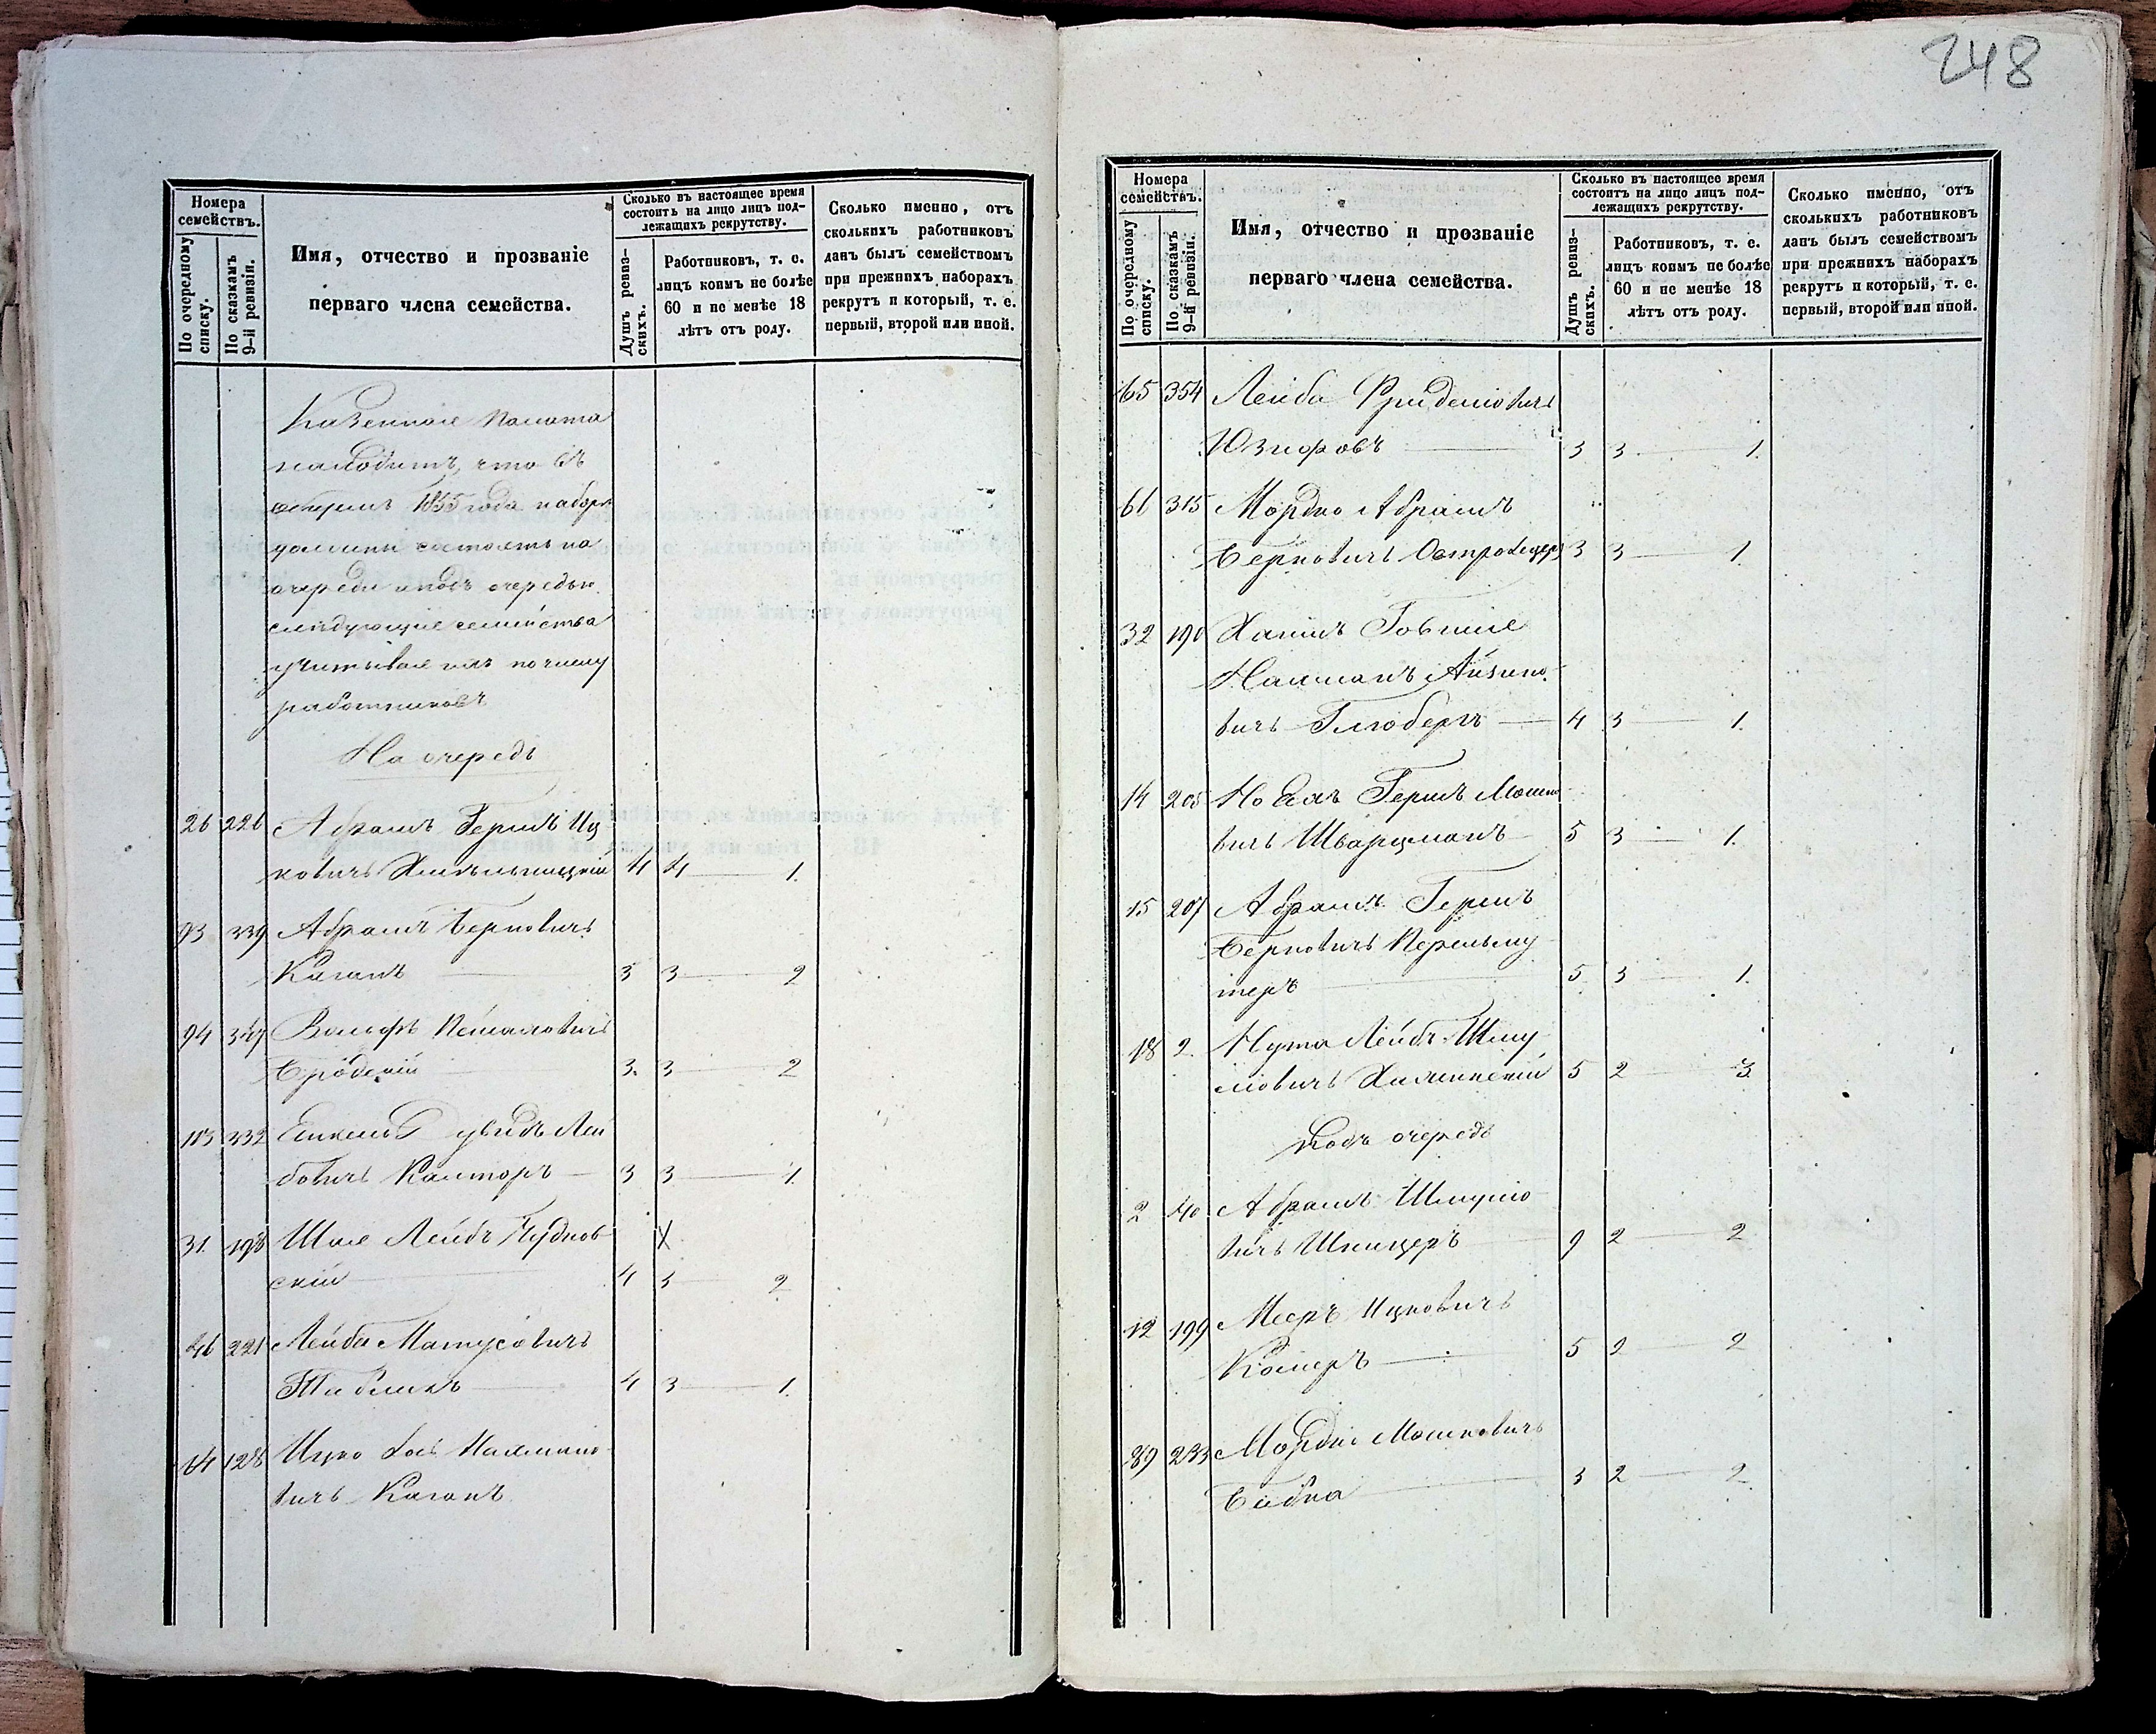 248
Номера семействъ.
По очередному списку.
По сказкамъ 9-й ревизіи.
Имя, отчество и прозваніе
перваго члена семейства.
Сколько въ настоящее время
состоитъ на лицо лицъ под-
лежащихъ рекрутству.
Душъ ревиз-
скихъ.
Работниковъ, т. е.
лицъ коимъ не болѣе
60 и не менѣе 18
лѣтъ отъ роду.
Сколько именно, отъ
сколькихъ работниковъ
данъ былъ семействомъ
при прежнихъ наборахъ
рекрутъ и который, т. е.
первый, второй или иной.
Казенная Палата
находитъ, что въ
1855 года наборъ
должны состоять на
очереди и подъ очередью
слѣдующіе семейства
учитывая ихъ по числу
работниковъ
На очередь
26 226 Абрамъ Гершъ Иц
ковичъ Хмельницкій 4 4 1.
93 339 Абрамъ Берковичъ
Каганъ 3 3 2
94 347 Вольфъ
Бродскій 3. 3 2
113 332 Дувидъ Лей
бовичъ Канторъ 3 3 1
31. 198 Шая Лейбъ Чуднов
скій 4 3 2
X
46 221 Лейба Матусовичъ
4 3 1.
64 128 Ицко
вичъ Каганъ
Номера семействъ.
По очередному списку.
По сказкамъ 9-й ревизіи.
Имя, отчество и прозваніе
перваго члена семейства.
Сколько въ настоящее время
состоитъ на лицо лицъ под-
лежащихъ рекрутству.
Душъ ревиз-
скихъ.
Работниковъ, т. е.
лицъ коимъ не болѣе
60 и не менѣе 18
лѣтъ отъ роду.
Сколько именно, отъ
сколькихъ работниковъ
данъ былъ семействомъ
при прежнихъ наборахъ
рекрутъ и который, т. е.
первый, второй или иной.
65 354 Лейба
Юзифовъ 3 3 1.
61 315 Мордко Абрамъ
Берковичъ 3 3 1.
32 190 Хаимъ
Айзико-
вичъ 4 3 1.
14 205 Гершъ Мошко
вичъ Шварцманъ 5 3 1.
15 207 Абрамъ Гершъ
Берковичъ Перельму
теръ 5 3 1.
18 2. Нута Лейбъ Шму
ловичъ 5 2 3
Подъ очередь
2 40 Абрамъ Шмуло
вичъ Шницеръ 9 2 2
12 199 Мееръ Ицковичъ
5 2 2
89 233 Мордко Мошковичъ
3 2 2